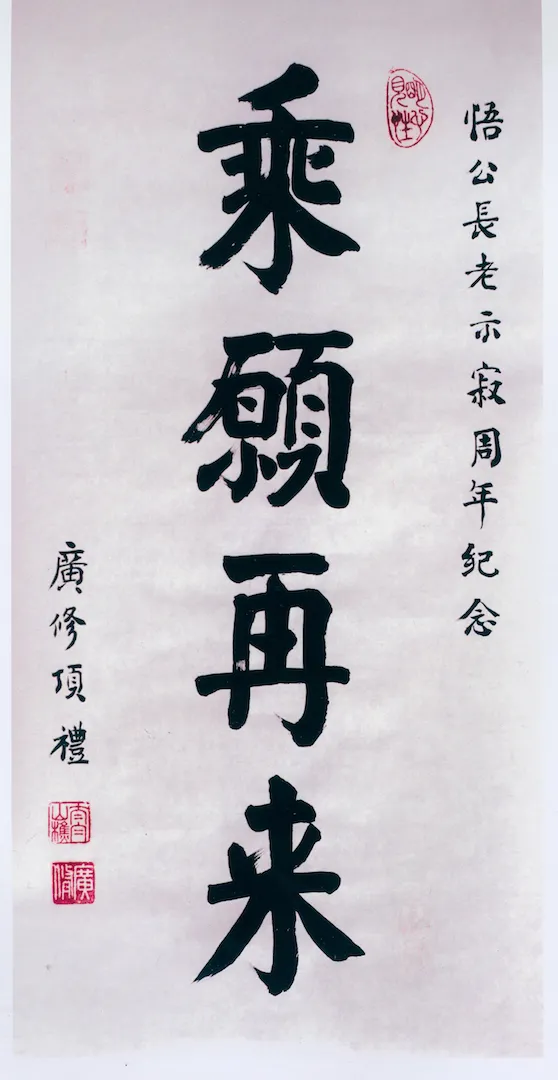 悟公長老示寂周年紀念
乘願再来
廣修頂禮
廣修